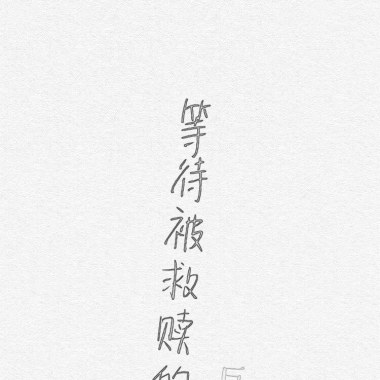 等待被救赎的